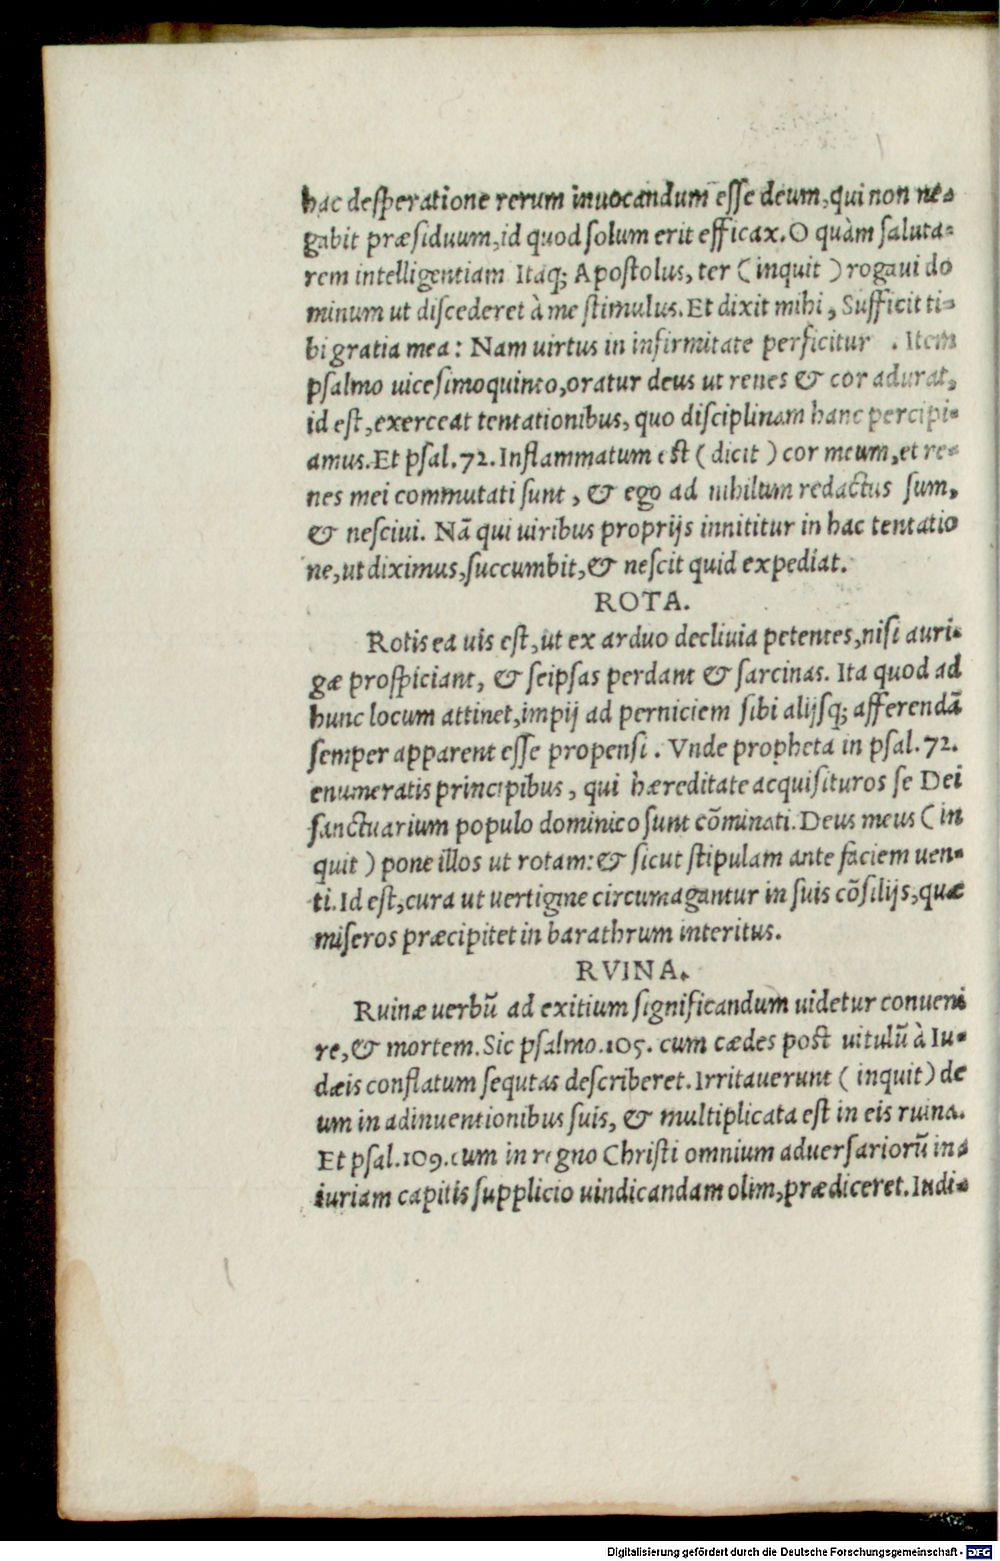 hac desperatione rerum inuocandum esse deum, qui non ne-
gabit præsiduum, id quod solum erit efficax. O quàm saluta-
rem intelligentiam Itaq; Apostolus, ter ( inquit ) rogaui do
minum ut discederet à me stimulus. Et dixit mihi, Sufficit ti-
bi gratia mea : Nam uirtus in infirmitate perficitur . Item
psalmo uicesimoquinto, oratur deus ut renes & cor adurat,
id est, exerceat tentationibus, quo disciplinam hanc percipi-
amus. Et psal. 72. Inflammatum est ( dicit ) cor meum, et re-
nes mei commutati sunt, & ego ad nihilum redactus sum,
& nesciui. Nā qui uiribus proprijs innititur in hac tentatio
ne, ut diximus, succumbit, & nescit quid expediat.
ROTA.
Rotis ea uis est, ut ex arduo decliuia petentes, nisi auri-
gæ prospiciant, & seipsas perdant & sarcinas. Ita quod ad
hunc locum attinet, impij ad perniciem sibi alijsq; afferendā
semper apparent esse propensi. Vnde propheta in psal. 72.
enumeratis principibus, qui hæreditate acquisituros se Dei
sanctuarium populo dominico sunt cōminati. Deus meus ( in
quit ) pone illos ut rotam: & sicut stipulam ante faciem uen-
ti. Id est, cura ut uertigine circumagantur in suis cōsilijs, quæ
miseros præcipitet in barathrum interitus.
RVINA.
Ruinæ uerbū ad exitium significandum uidetur conueni
re, & mortem. Sic psalmo. 105. cum cædes post uitulū à Iu-
dæis conflatum sequtas describeret. Irritauerunt ( inquit ) de
um in adinuentionibus suis, & multiplicata est in eis ruina.
Et psal. 109. cum in regno Christi omnium aduersariorū in-
iuriam capitis supplicio uindicandam olim, prædiceret. Iudi-
Digitalisierung gefördert durch die Deutsche Forschungsgemeinschaft - DFG